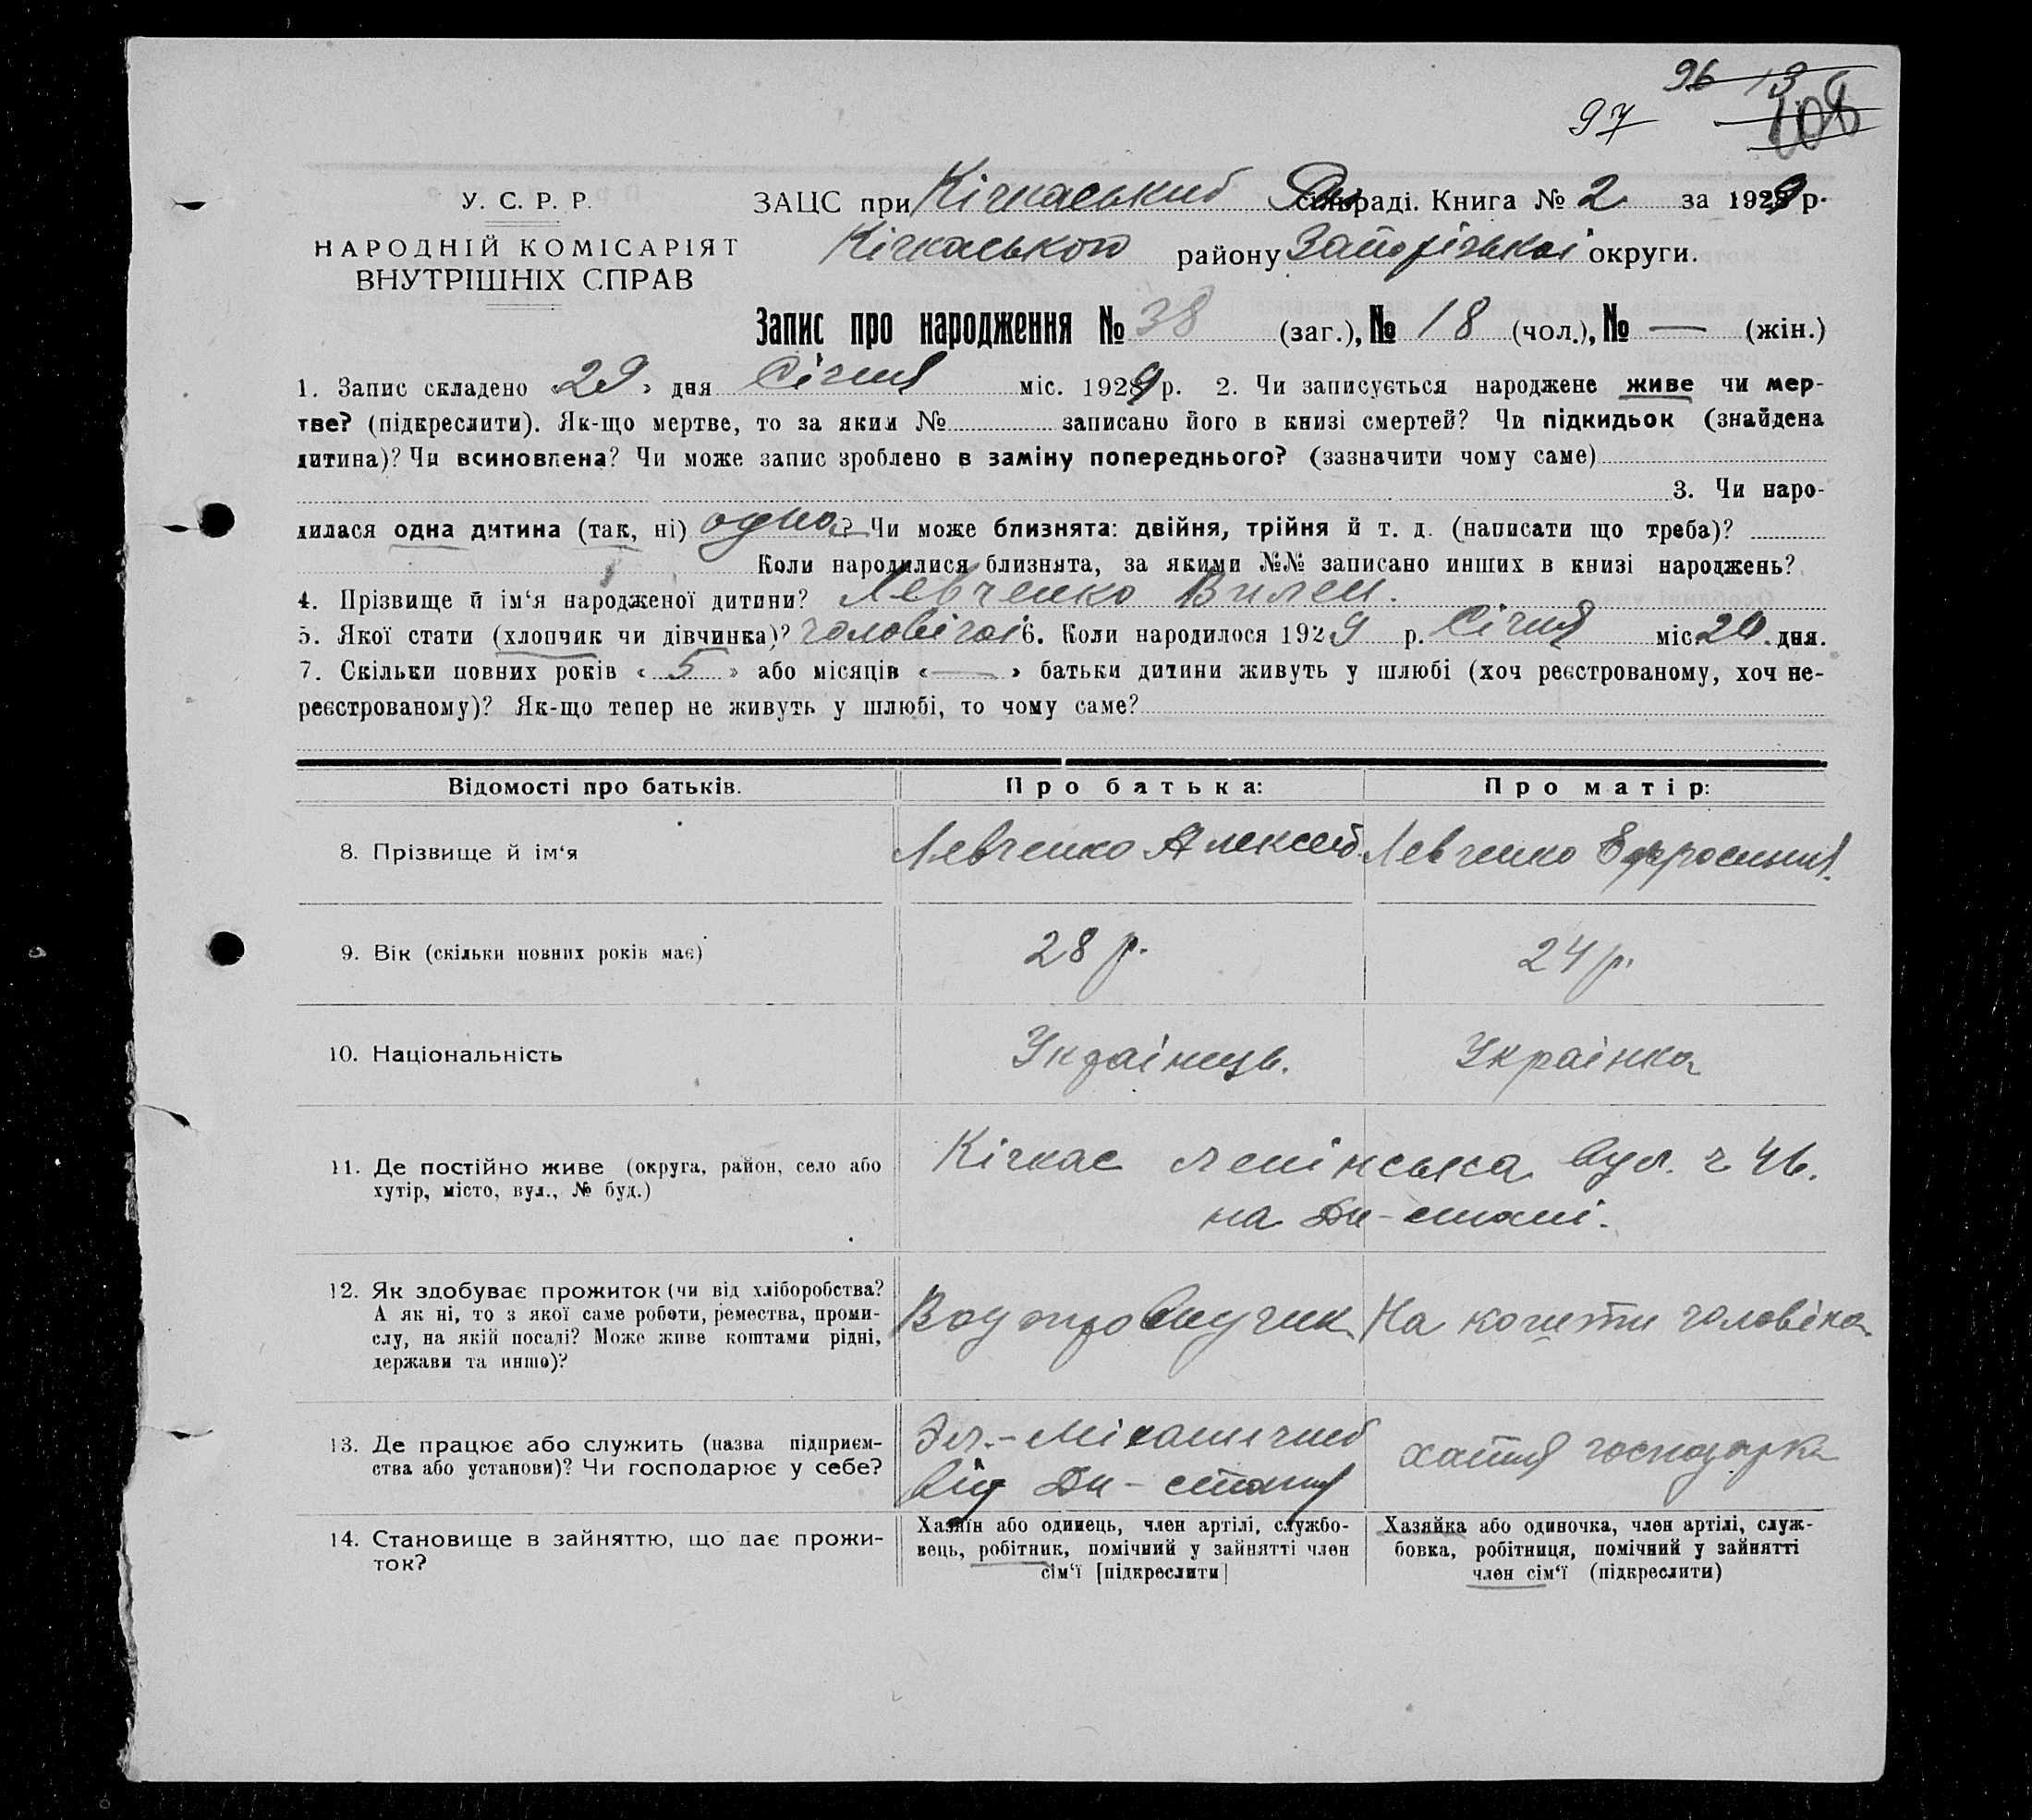 96 13
97 108
У. С. Р. Р.
НАРОДНІЙ КОМІСАРІЯТ
ВНУТРІШНІХ СПРАВ
ЗАЦС при Кічкаський сільраді. Книга № 2 за 1929 р.
Кічкаського району Запорізької округи.
Запис про народження № 38 (заг.), № 18 (чол.), № — (жін.)
1. Запис складено «29» дня Січня міс. 1929 р. 2. Чи записується народжене живе чи мер-
тве? (підкреслити). Як-що мертве, то за яким № записано його в книзі смертей? Чи підкидьок (знайдена
дитина)? Чи всиновлена? Чи може запис зроблено в заміну попереднього? (зазначити чому саме)
3. Чи наро-
дилася одна дитина (так, ні) одна? Чи може близнята: двійня, трійня й т. д. (написати що треба)?
Коли народилися близнята, за якими №№ записано инших в книзі народжень?
4. Прізвище й ім'я народженої дитини? Левченко Вилен.
5. Якої стати (хлопчик чи дівчинка)? чоловічої 6. Коли народилося 1929 р. Січня міс. дня.
7. Скільки повних років « 5 » або місяців « — » батьки дитини живуть у шлюбі (хоч реєстрованому, хоч не-
реєстрованому)? Як-що тепер не живуть у шлюбі, то чому саме?
Відомості про батьків. Про батька: Про матір:
8. Прізвище й ім'я Левченко Алексей. Левченко Ефросиния.
9. Вік (скільки повних років має) 28 р. 24 р.
10. Національність Українець. Українка
11. Де постійно живе (округа, район, село або
хутір, місто, вул., № буд.)
Кічкас Ленінська вул. ч 46.
на Дн-стані.
12. Як здобуває прожиток (чи від хліборобства?
А як ні, то з якої саме роботи, ремества, проми-
слу, на якій посаді? Може живе коштами рідні,
держави та иншо)?
На кошти чоловіка
13. Де працює або служить (назва підприєм-
ства або установи)? Чи господарює у себе?
Эл.-Міханичний
від Дн-стану
хатня господарка
14. Становище в зайняттю, що дає прожи-
ток?
Хазяїн або одинець, член артілі, службо-
вець, робітник, помічний у зайнятті член
сім'ї [підкреслити]
Хазяйка або одиночка, член артілі, служ-
бовка, робітниця, помічний у зайнятті
член сім'ї (підкреслити)